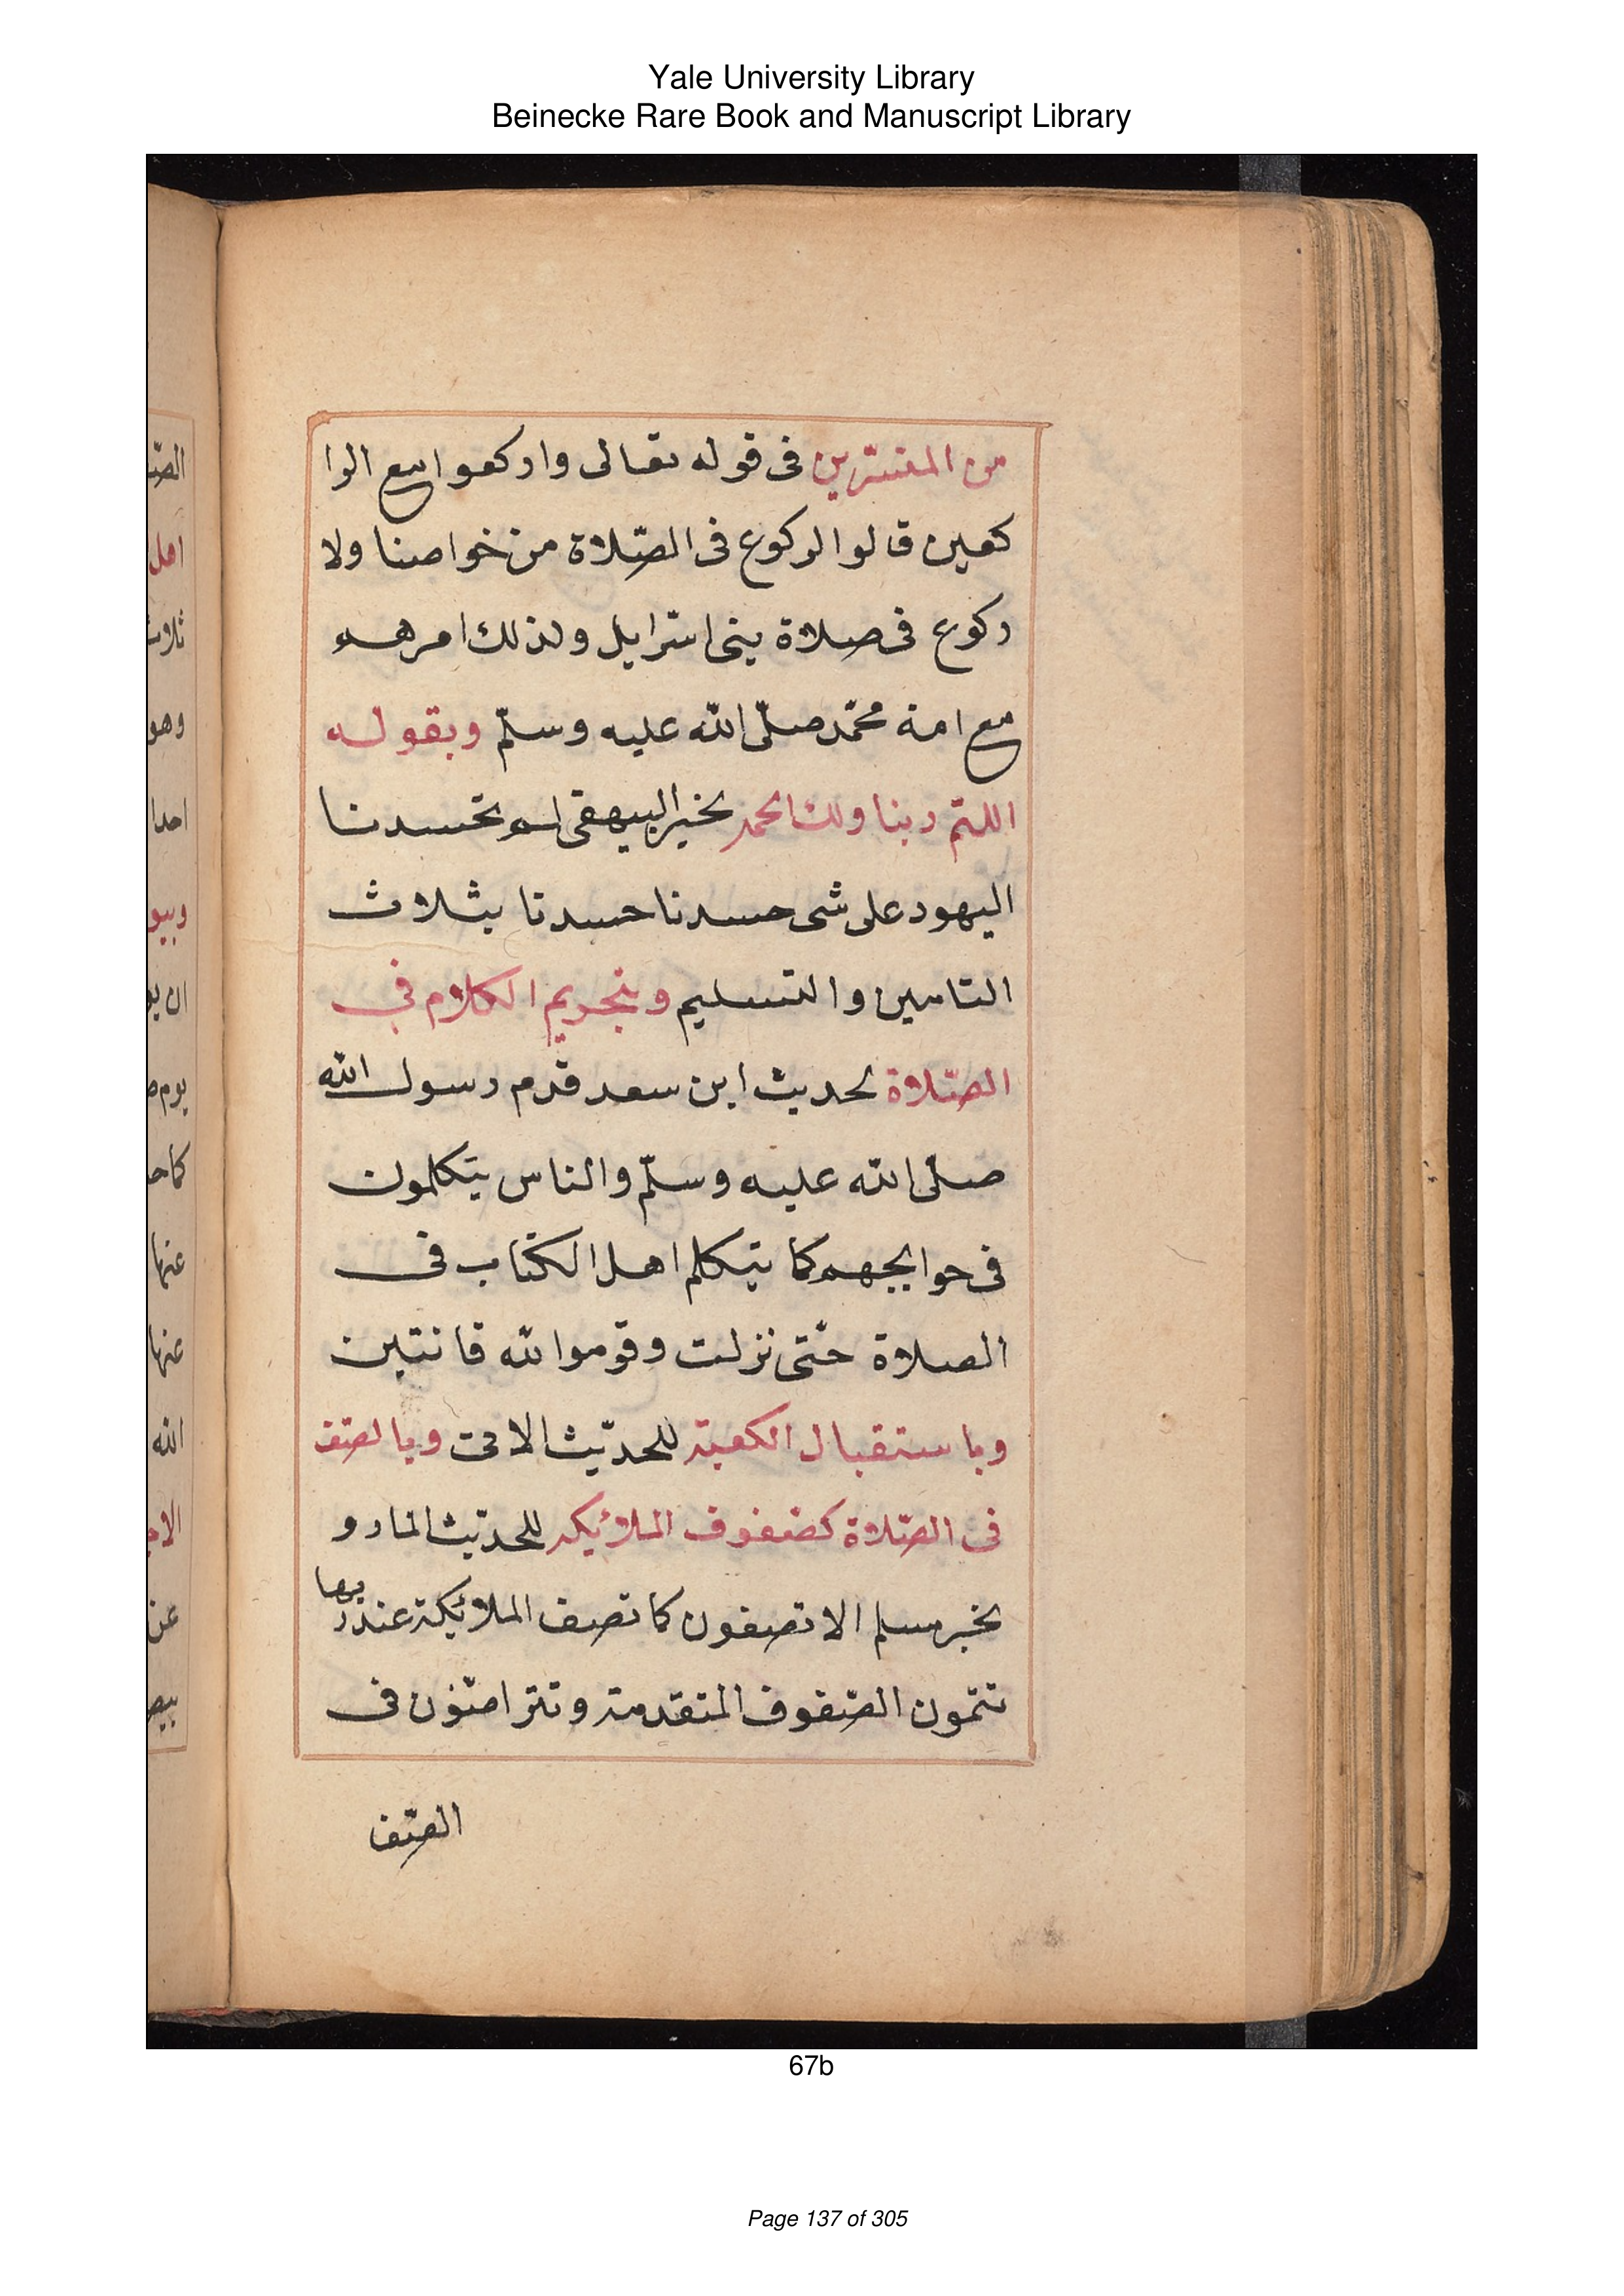 Yale University Library
Beinecke Rare Book and Manuscript Library
من المفسّرين فى قوله تعالى واركعوا مع الرا
كعين قالوا الركوع فى الصّلاة من خواصنا ولا
ركوع فى صلاة بنى اسرايل ولذلك امرهم
مع امة محمّد صلّى الله عليه وسلّم وبقوله
اللّهم ربنا ولك الحمد بخبر البيهقى لم تحسدنا
اليهود على شى حسدنا حسدتا بثلاث
التامين والتسليم وبتحريم الكلام فى
الصّلاة لحديث ابن سعد قدم رسول الله
صلّى الله عليه وسلّم والناس يتكلمون
فى حوايجهم كما يتكلم اهل الكتاب فى
الصلاة حتّى نزلت وقوموا لله قانتين
وباستقبال الكعبة للحديث الاتى وبالصّف
فى الصّلاة كصفوف الملائكة للحديث المار و
بخبر مسلم الا تصفون كما تصف الملائكة عند ربها
تتمون الصّفوف المتقدمة وتتراصّون فى
الصّف
الصّ
اهل
ثلاث
وهو
احدا
الله
عنها
عنها
عن
67b
Page 137 of 305